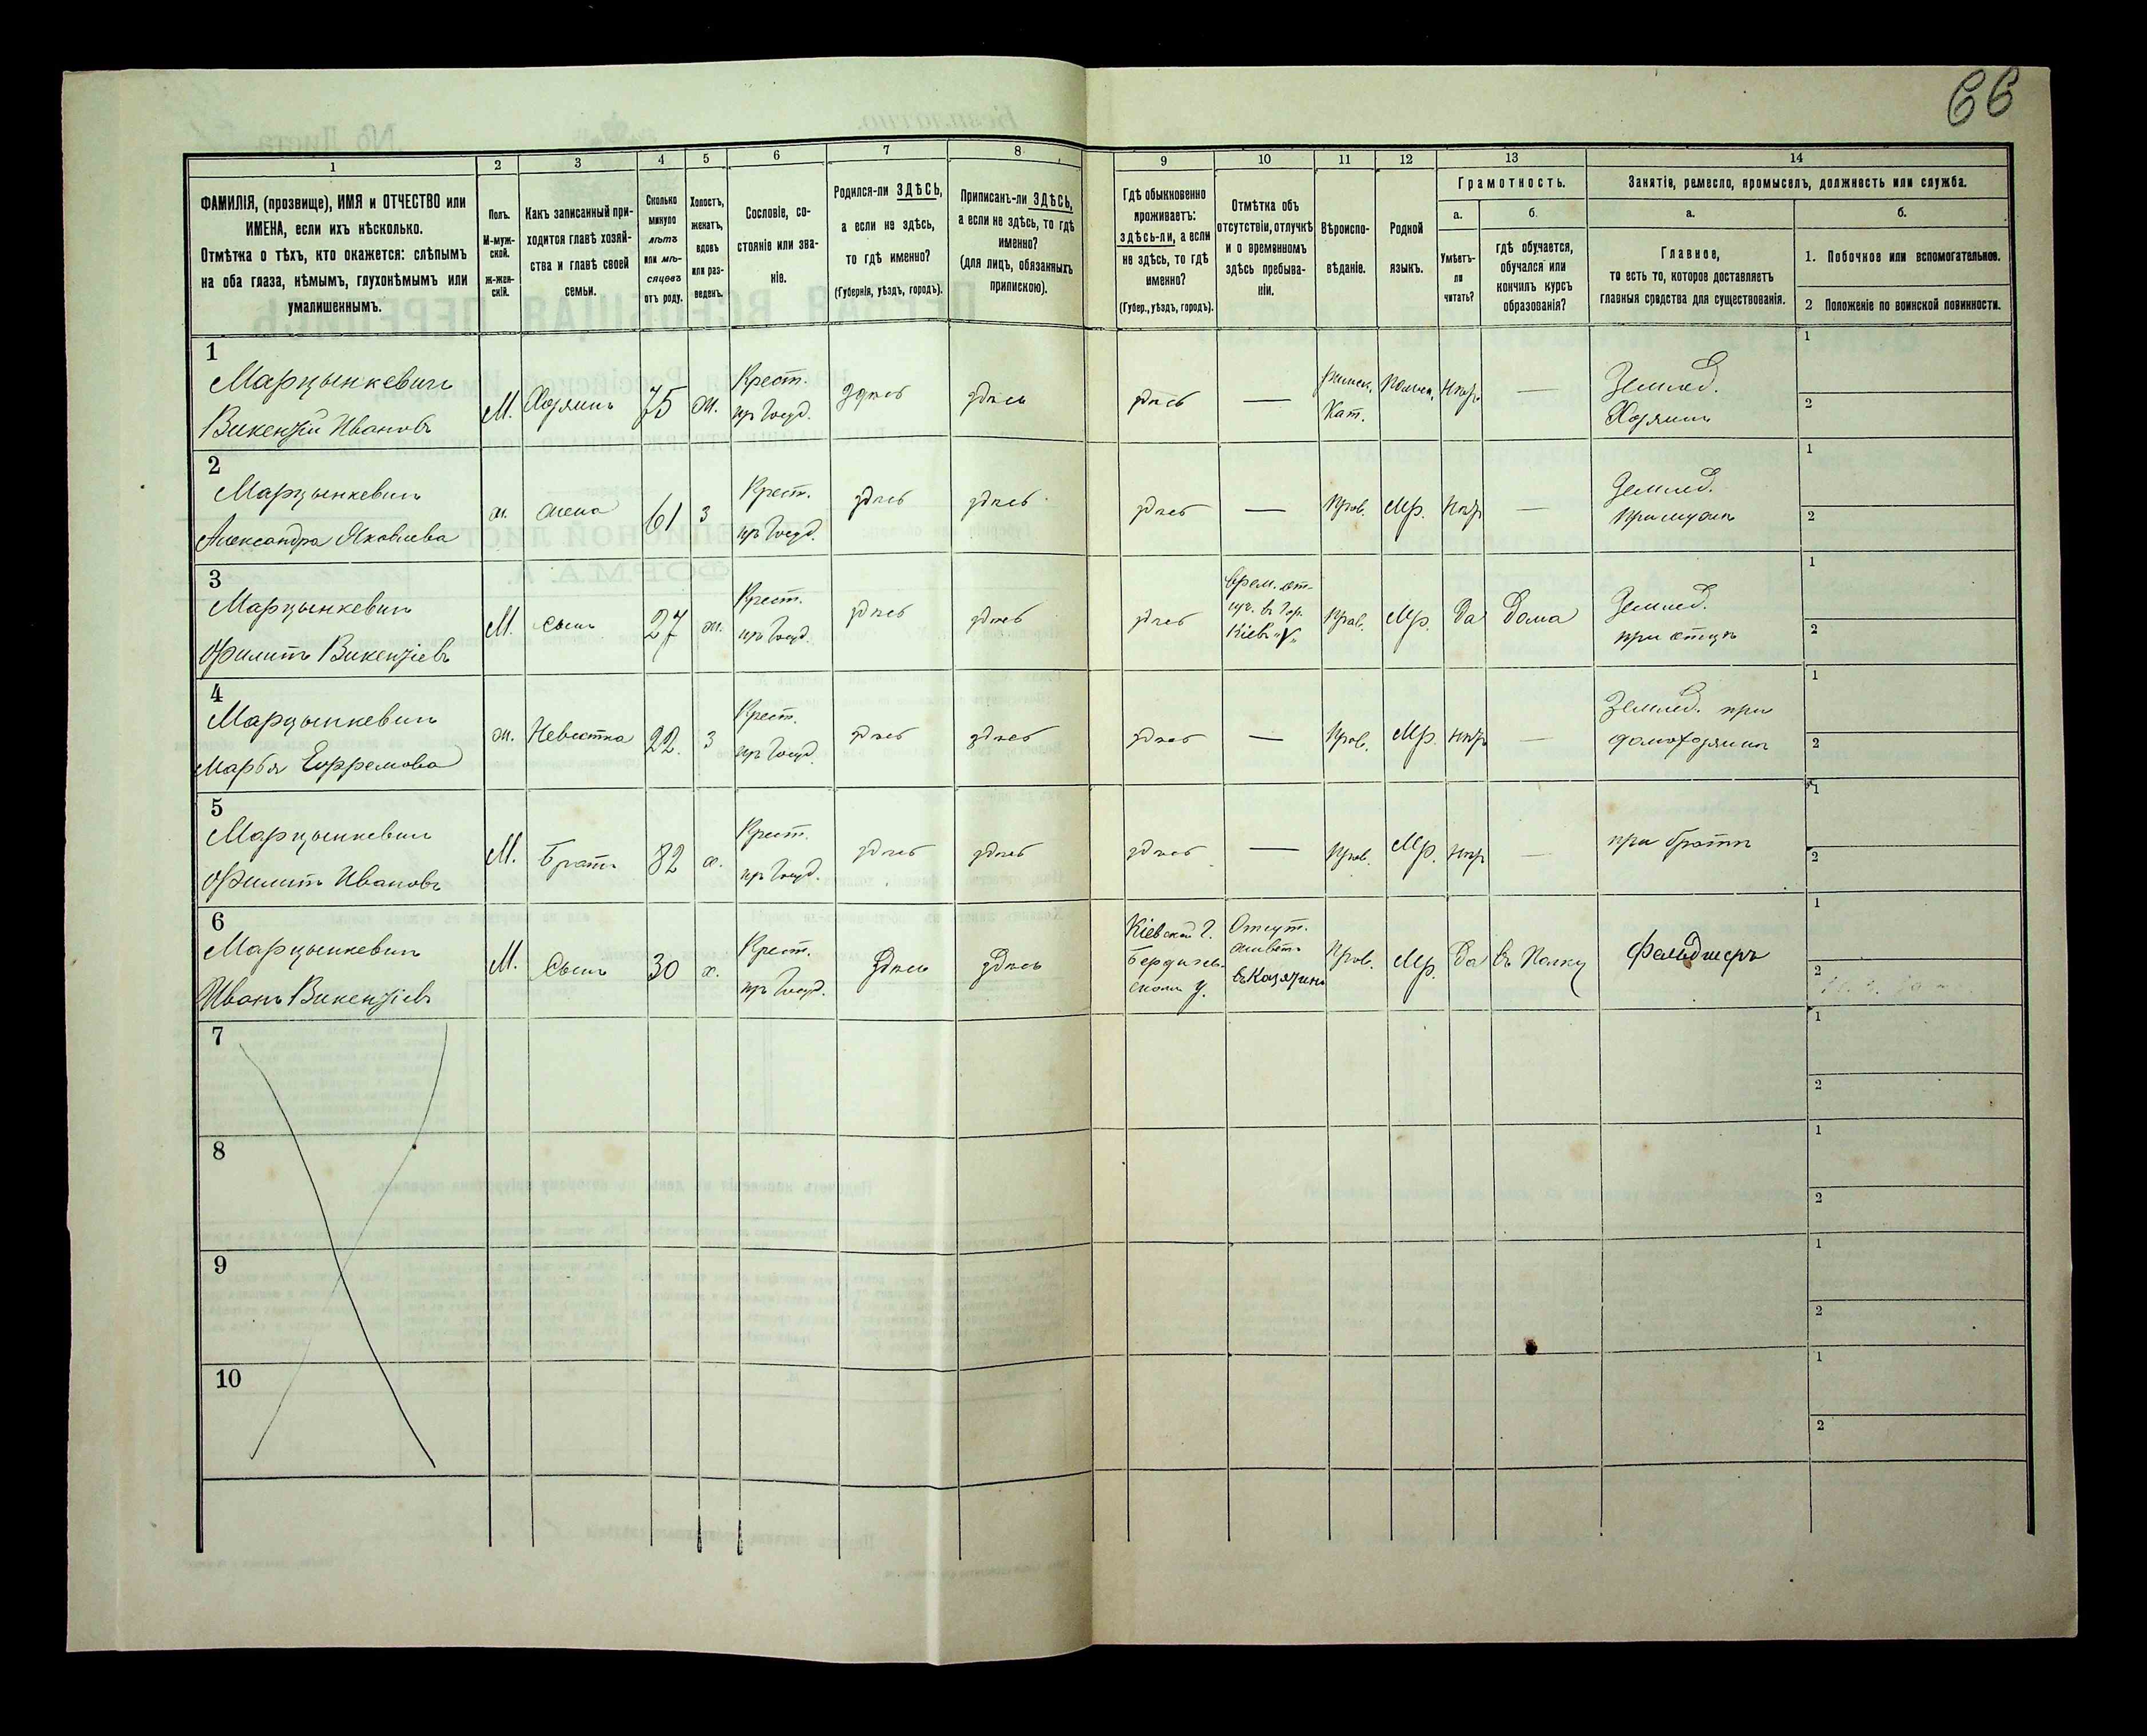 66
1
2
3
4
5
6
7
8
9
10
11
12
13
14
ФАМИЛІЯ, (прозвище), ИМЯ и ОТЧЕСТВО или
ИМЕНА, если ихъ нѣсколько.
Отмѣтка о тѣхъ, кто окажется: слѣпымъ
на оба глаза, нѣмымъ, глухонѣмымъ или
умалишеннымъ.
Полъ.
М-муж-
ской.
Ж-жен-
скій.
Какъ записанный при-
ходится главѣ хозяй-
ства и главѣ своей
семьи.
Сколько
минуло
лѣтъ
или мѣ-
сяцевъ
отъ роду.
Холостъ,
женатъ,
вдовъ
или раз-
веденъ.
Сословіе, со-
стояніе или зва-
ніе.
Родился-ли ЗДѢСЬ,
а если не здѣсь,
то гдѣ именно?
(Губернія, уѣздъ, городъ).
Приписанъ-ли ЗДѢСЬ,
а если не здѣсь, то гдѣ
именно?
(для лицъ, обязанныхъ
припискою).
Гдѣ обыкновенно
проживаетъ:
здѣсь-ли, а если
не здѣсь, то гдѣ
именно?
(Губер., уѣздъ, городъ).
Отмѣтка объ
отсутствіи, отлучкѣ
и о временномъ
здѣсь пребыва-
ніи.
Вѣроиспо-
вѣданіе.
Родной
языкъ.
Грамотность.
а.
Умѣетъ-
ли
читать?
б.
гдѣ обучается,
обучался или
кончилъ курсъ
образованія?
Занятіе, ремесло, промыселъ, должность или служба.
а.
Главное,
то есть то, которое доставляетъ
главныя средства для существованія.
б.
1. Побочное или вспомогательное.
2 Положеніе по воинской повинности.
1
Марцынкевичъ
Викентій Ивановъ
М. Хозяинъ 75 ж. Крест. здѣсь здѣсь здѣсь — Римск. Польск. —
Кат.
Землед.
Хозяинъ
1
2
2
Марцынкевичъ
Александра Яковлева
ж. жена 61 з Крест. здѣсь здѣсь здѣсь — Прав. Мр. —
Землед.
При мужѣ
1
2
3
Марцынкевичъ
Филипъ Викентіевъ
М. сынъ 27 ж. Крест. здѣсь здѣсь здѣсь
Врем. от-
луч. въ Гор.
Кіевъ
Прав. Мр. Да Дома
Землед.
при отцѣ
1
2
4
Марцынкевичъ
Марья Ефремова
ж. Невѣстка 22. з Крест. здѣсь здѣсь здѣсь — Прав. Мр. —
Землед. при
домохозяинѣ
1
2
5
Марцынкевичъ
Филипъ Ивановъ
М. Братъ 82 х. Крест. здѣсь здѣсь здѣсь — Прав. Мр. —
при братѣ
1
2
6
Марцынкевичъ
Иванъ Викентіевъ
М. Сынъ 30 х. Крест. здѣсь здѣсь
Кіевской Г.
Бердичев-
скомъ у.
Отсут.
живетъ
въ Казятинѣ
Прав. Мр. Да въ Полку Фельдшеръ
1
2
7
1
2
8
1
2
9
1
2
10
1
2